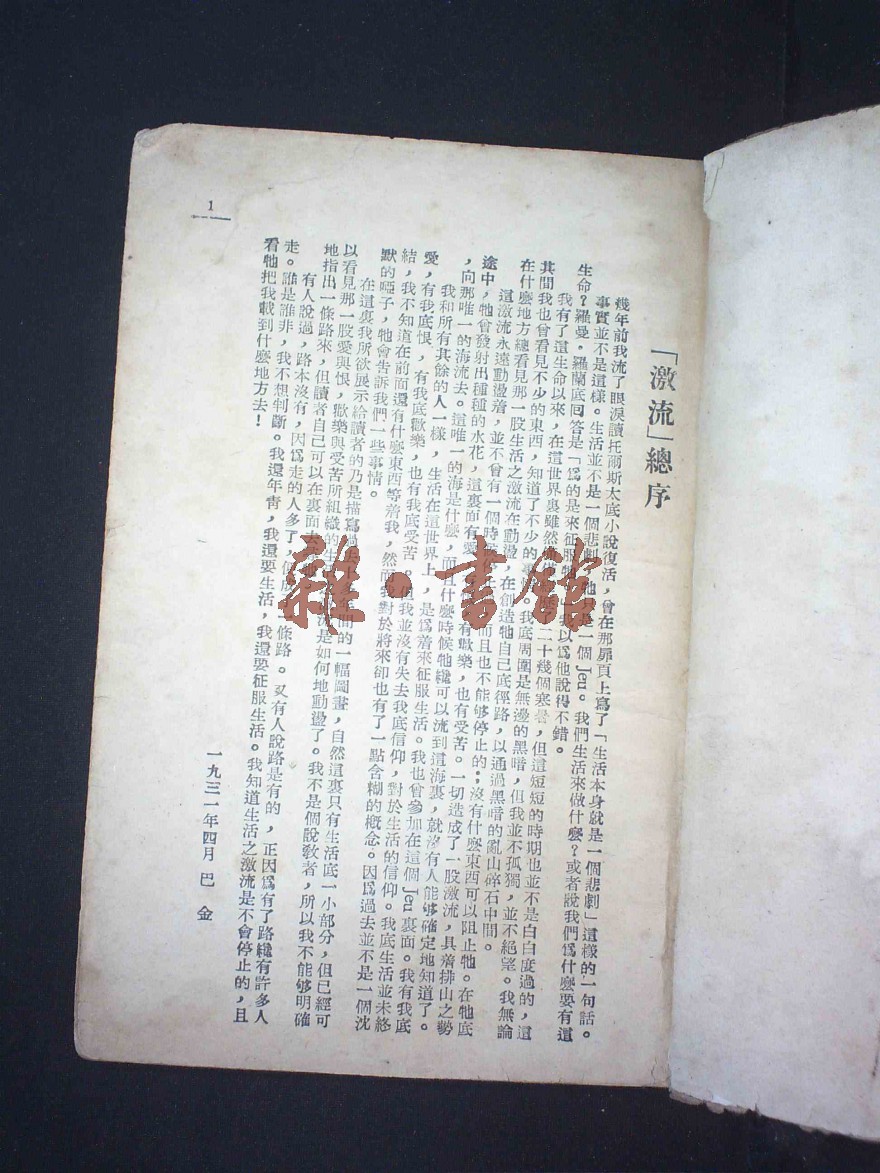 「激流」總序
幾年前我流了眼淚讀托爾斯太底小說復活，曾在那扉頁上寫了「生活本身就是一個悲劇」這樣的一句話。
事實並不是這樣。生活並不是一個悲劇，牠是一個Jeu。我們生活來做什麼？或者說我們爲什麼要有這
生命？羅曼．羅蘭底回答是「爲的是來征服牠」我以爲他說得不錯。
我有了這生命以來，在這世界裏雖然二十幾個寒暑，但這短短的時期也並不是白白度過的，這
其間我也曾看見不少的東西，知道了不少的事。我底周圍是無邊的黑暗，但我並不孤獨，並不絕望。我無論
在什麼地方總看見那一股生活之激流在動盪，在創造牠自己底徑路，以通過黑暗的亂山碎石中間。
這激流永遠動盪着，並不曾有一個時而且也不能够停止的；沒有什麼東西可以阻止牠。在牠底
途中，牠曾發射出種種的水花，這裏面有愛，有歡樂，也有受苦。一切造成了一股激流，具着排山之勢
，向那唯一的海流去。這唯一的海是什麼，而且什麼時候牠纔可以流到這海裏，就沒有人能够確定地知道了。
我和所有其餘的人一樣，生活在這世界上，是爲着來征服生活。我也曾參加在這個Jeu裏面。我有我底
愛，有我底恨，有我底歡樂，也有我底受苦。但我並沒有失去我底信仰，對於生活的信仰。我底生活並未終
結，我不知道在前面還有什麼東西等着我，然而我對於將來卻也有了一點含糊的概念。因爲過去並不是一個沈
默的啞子，牠會告訴我們一些事情。
在這裏我所欲展示給讀者的乃是描寫過去間的一幅圖畫，自然這裏只有生活底一小部分，但已經可
以看見那一股愛與恨，歡樂與受苦所組織的生是如何地動盪了。我不是個說敎者，所以我不能够明確
地指出一條路來，但讀者自己可以在裏面去
有人說過，路本沒有，因爲走的人多了，一條路。又有人說路是有的，正因爲有了路纔有許多人
走。誰是誰非，我不想判斷。我還年靑，我還要生活，我還要征服生活。我知道生活之激流是不會停止的，且
看牠把我載到什麼地方去！
一九三一年四月 巴 金
1
雜·書館